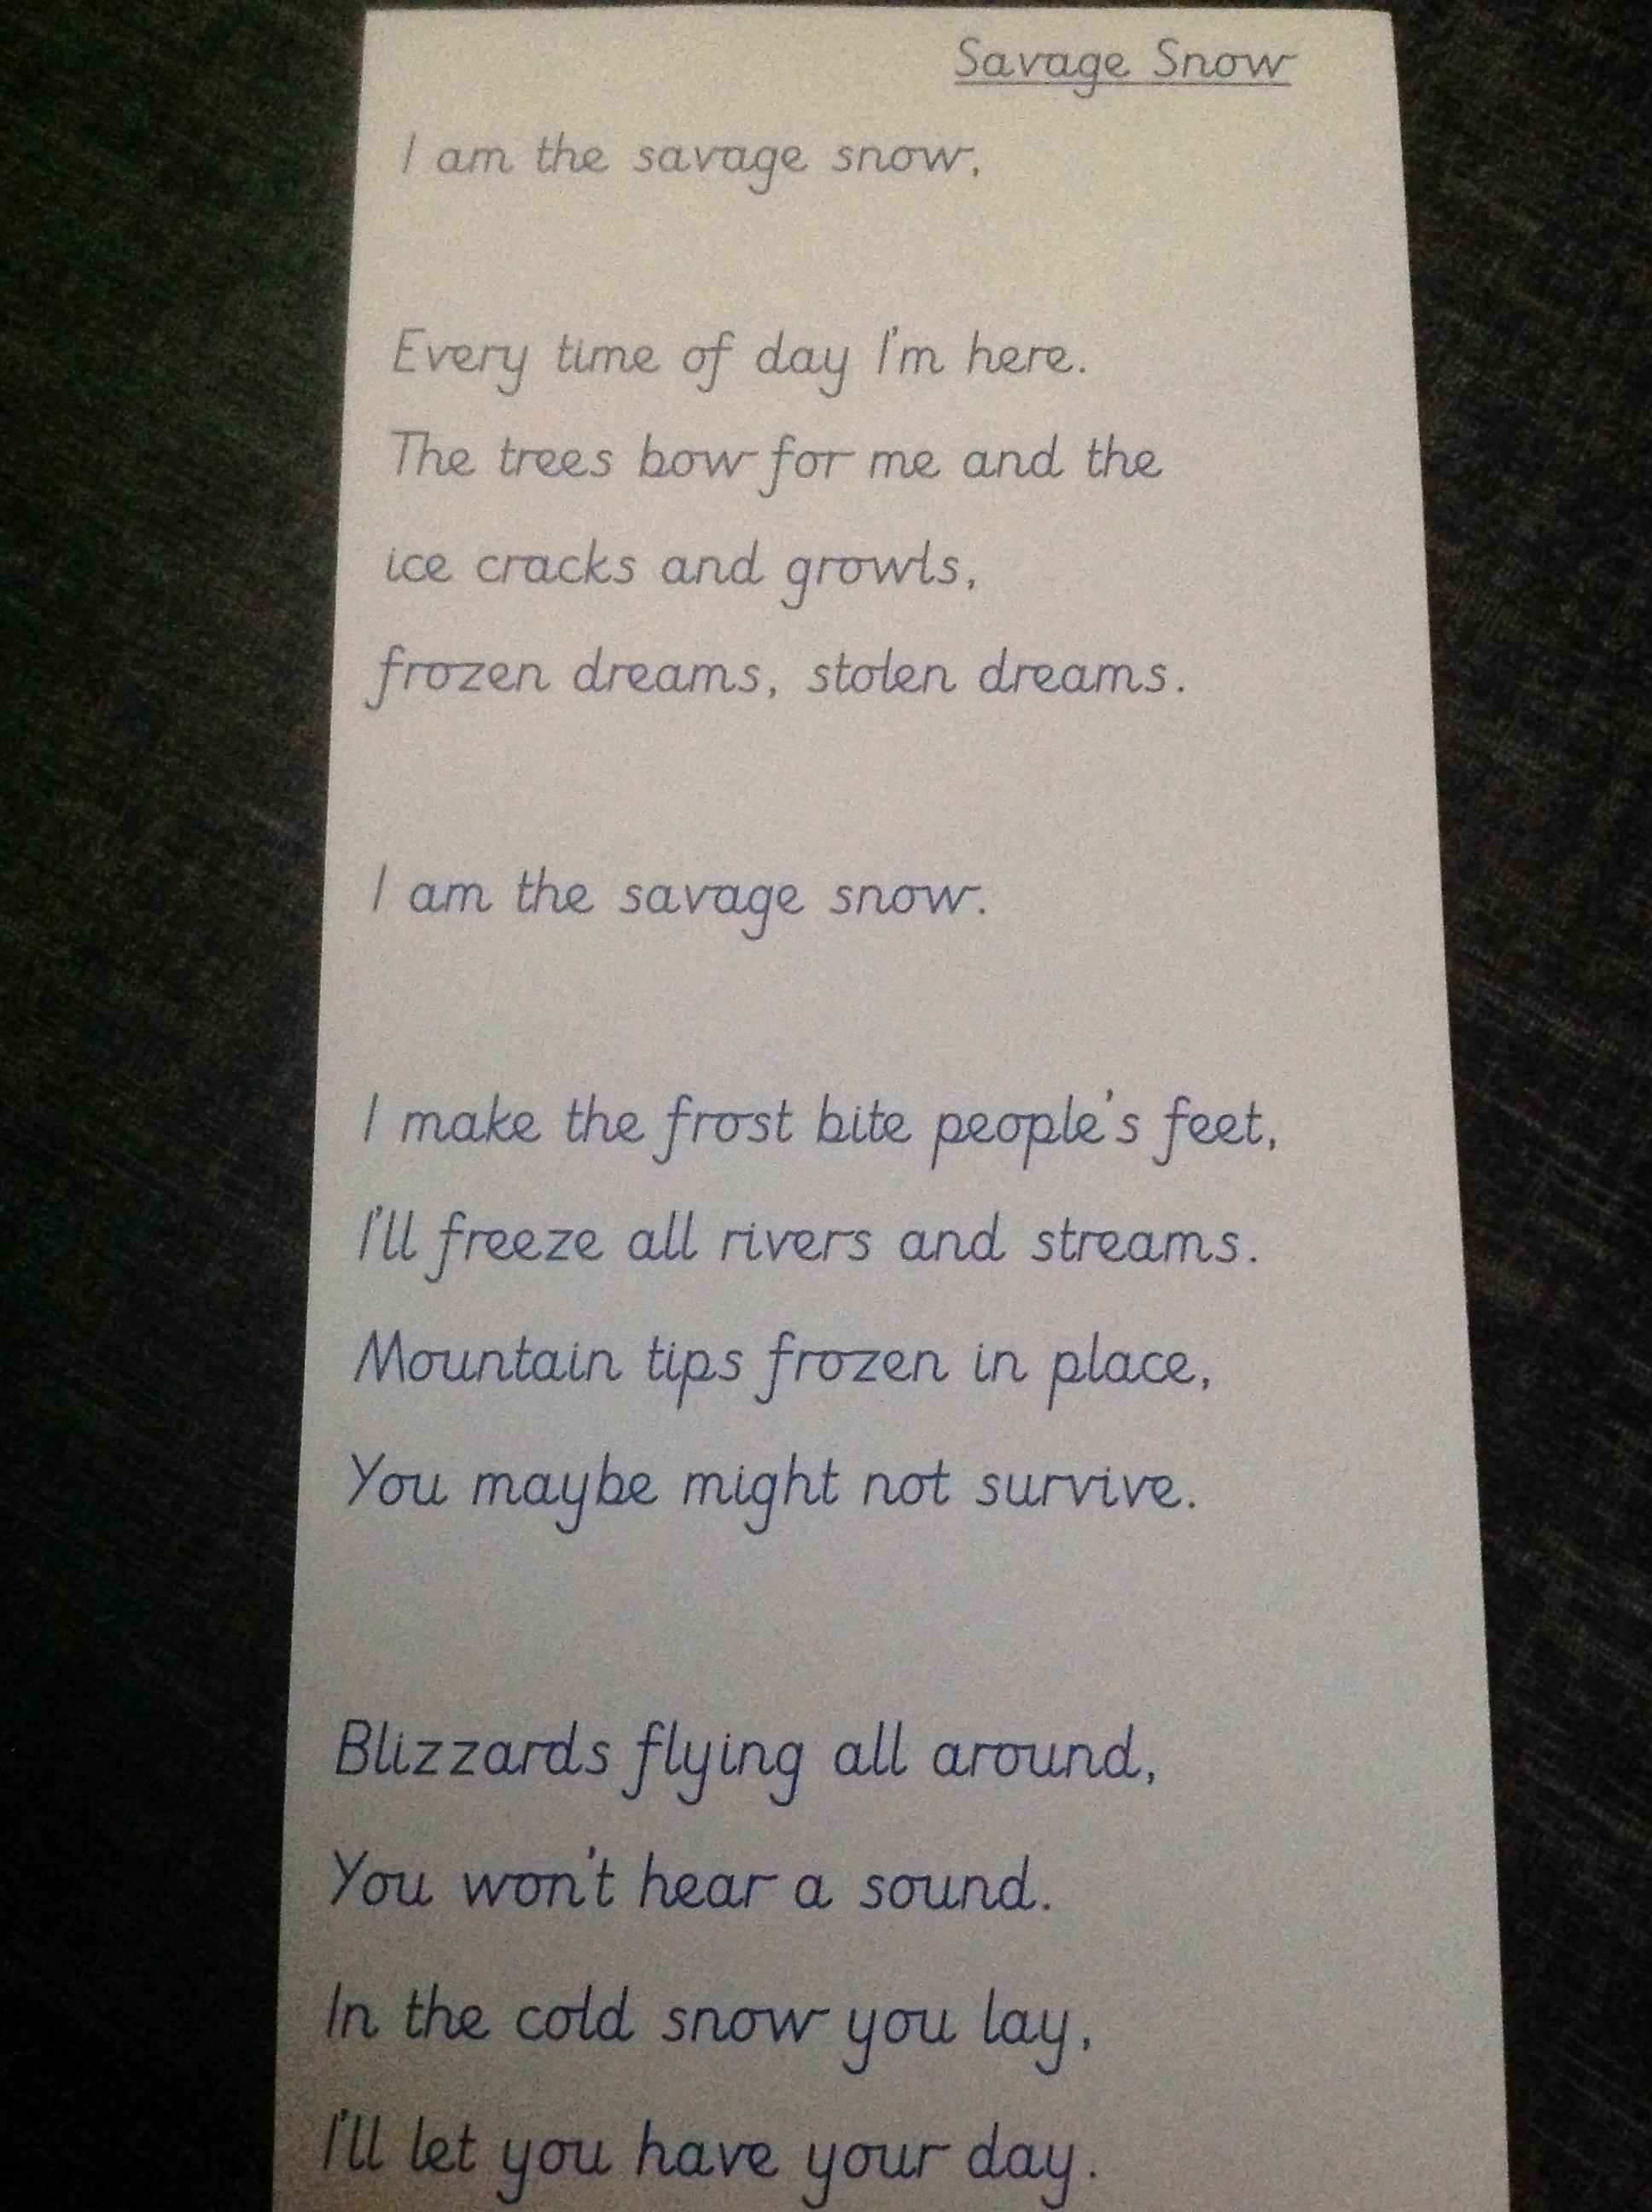 Savage Snow
I am the savage snow,
Every time of day I'm here.
The trees bow for me and the
ice cracks and growls,
frozen dreams, stolen dreams.
I am the savage snow.
I make the frost bite people's feet,
I'll freeze all rivers and streams.
Mountain tips frozen in place,
You maybe might not survive.
Blizzards flying all around,
You won't hear a sound.
In the cold snow you lay,
I'll let you have your day.